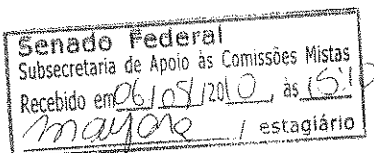 Senado Federal
Subsecretaria de Apoio às Comissões Mistas
Recebido em 06/05/2010, às 15:10
Mayara / estagiário